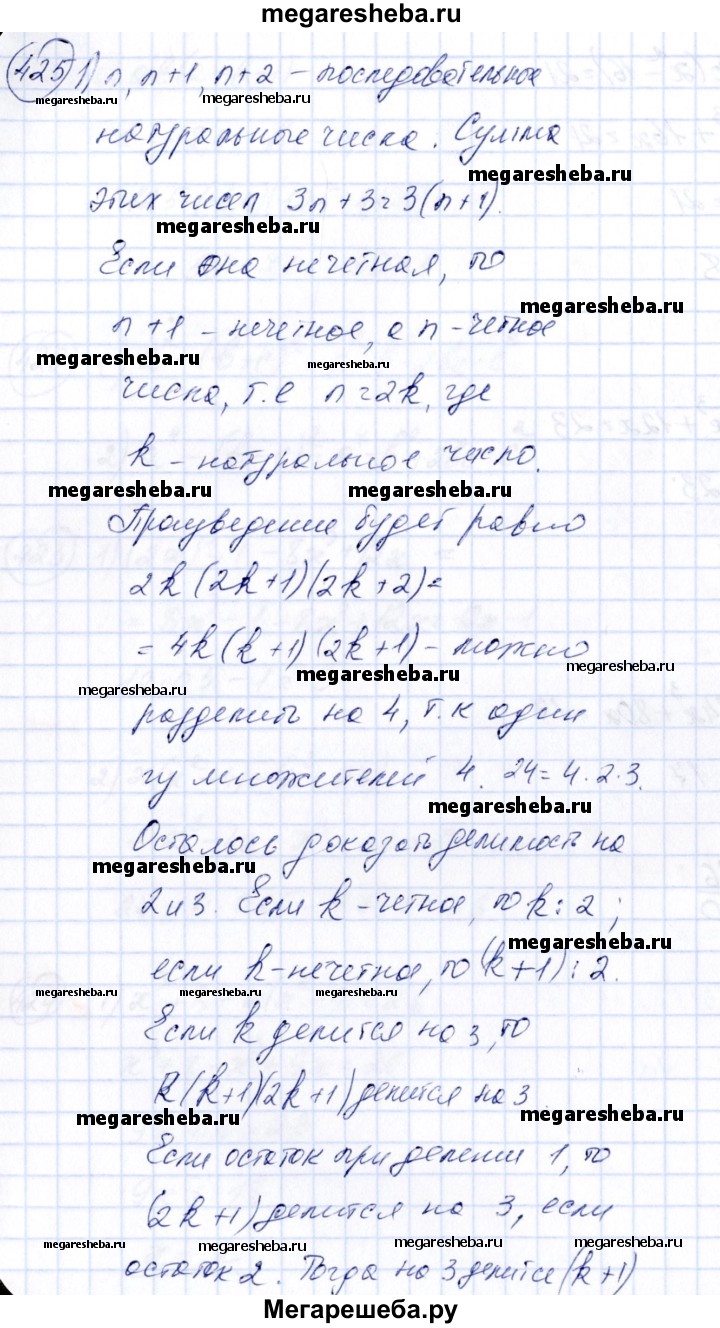 megaresheba.ru
425 1) n, n+1, n+2 – последовательные
megaresheba.ru megaresheba.ru
натуральные числа. Сумма
megaresheba.ru
этих чисел 3n+3=3(n+1).
megaresheba.ru
Если она нечетная, то
megaresheba.ru
n+1 – нечетное, а n – четное
megaresheba.ru megaresheba.ru
числа, т.е n=2k, где
k – натуральное число.
megaresheba.ru megaresheba.ru
Произведение будет равно
2k(2k+1)(2k+2)=
=4k(k+1)(2k+1) – можно
megaresheba.ru megaresheba.ru megaresheba.ru
разделить на 4, т.к один
из множителей 4. 24=4·2·3.
megaresheba.ru
Осталось доказать делимость на
megaresheba.ru megaresheba.ru
2 и 3. Если k – четное, то k⋮2;
megaresheba.ru
если k – нечетное, то (k+1)⋮2.
megaresheba.ru megaresheba.ru megaresheba.ru
Если k делится на 3, то
k(k+1)(2k+1) делится на 3
megaresheba.ru megaresheba.ru megaresheba.ru
Если остаток при делении 1, то
(2k+1) делится на 3, если
megaresheba.ru megaresheba.ru megaresheba.ru
остаток 2. Тогда на 3 делится (k+1)
Мегарешеба.ру